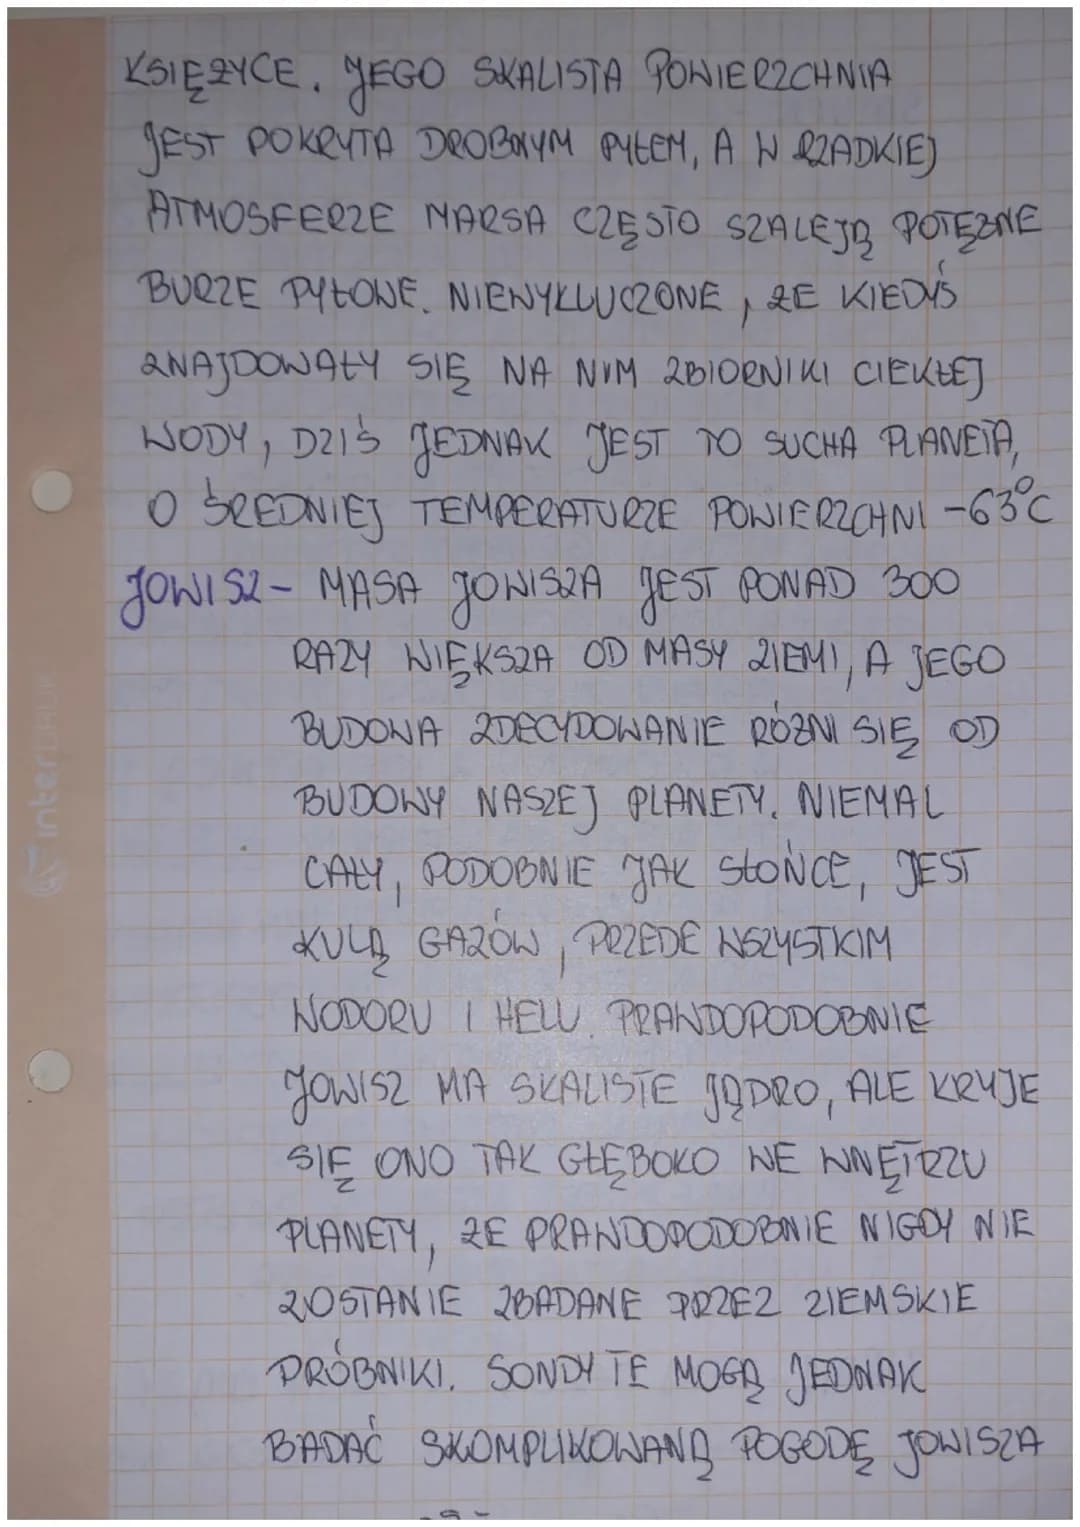 KSIĘŻYCE. JEGO SKALISTA POWIERZCHNIA
JEST POKRYTA DROBNYM PYŁEM, A W RZADKIEJ
ATMOSFERZE MARSA CZĘSTO SZALEJĄ POTĘŻNE
BURZE PYŁOWE. NIEWYKLUCZONE, ŻE KIEDYŚ
ZNAJDOWAŁY SIĘ NA NIM ZBIORNIKI CIEKŁEJ
WODY, DZIŚ JEDNAK JEST TO SUCHA PLANETA,
O ŚREDNIEJ TEMPERATURZE POWIERZCHNI -63°C
JOWISZ - MASA JOWISZA JEST PONAD 300
RAZY WIĘKSZA OD MASY ZIEMI, A JEGO
BUDOWA ZDECYDOWANIE RÓŻNI SIĘ OD
BUDOWY NASZEJ PLANETY. NIEMAL
CAŁY, PODOBNIE JAK SŁOŃCE, JEST
KULĄ GAZÓW, PRZEDE WSZYSTKIM
WODORU I HELU. PRAWDOPODOBNIE
JOWISZ MA SKALISTE JĄDRO, ALE KRYJE
SIĘ ONO TAK GŁĘBOKO WE WNĘTRZU
PLANETY, ŻE PRAWDOPODOBNIE NIGDY NIE
ZOSTANIE ZBADANE PRZEZ ZIEMSKIE
PRÓBNIKI. SONDY TE MOGĄ JEDNAK
BADAĆ SKOMPLIKOWANĄ POGODĘ JOWISZA
interdruk